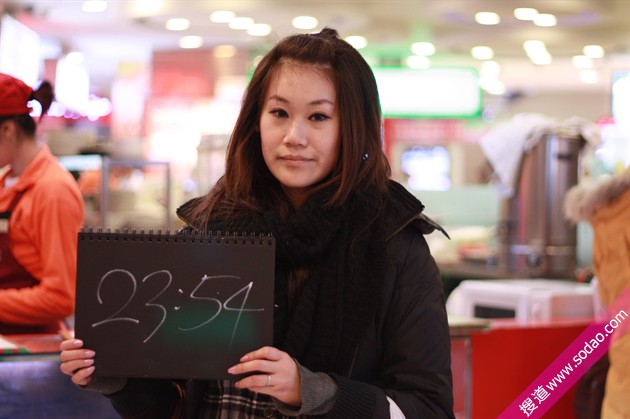 23:54
搜道 www.sodao.com